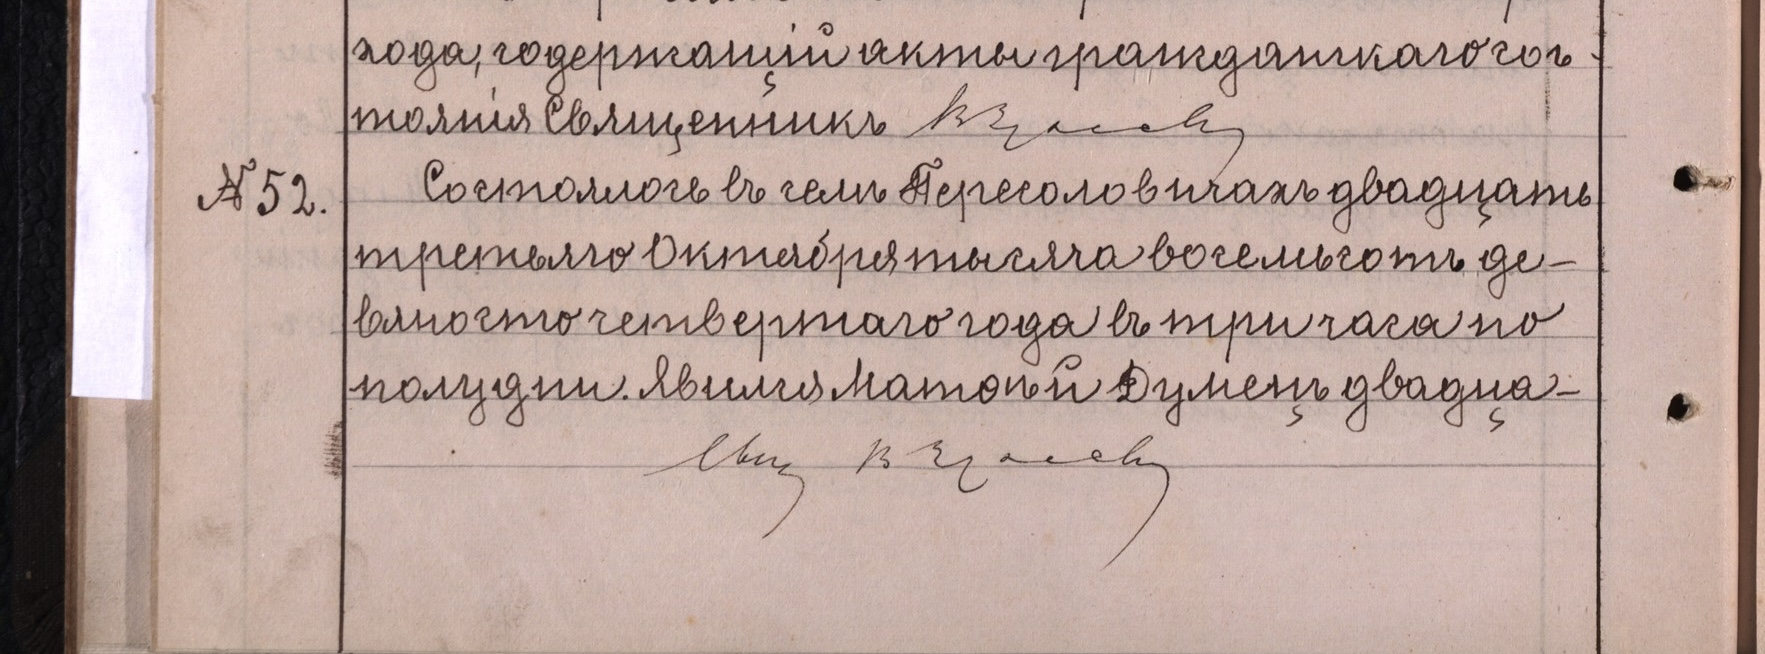 хода, содержащій акты гражданскаго сос-
тоянія Священникъ
N 52.
Состоялось въ селѣ Пересоловичахъ двадцать
третьяго Октября тысяча восемьсотъ де-
вяносто четвертаго года въ три часа по
полудни. Явился Матѳѣй Думецъ двадца-
Свящ В